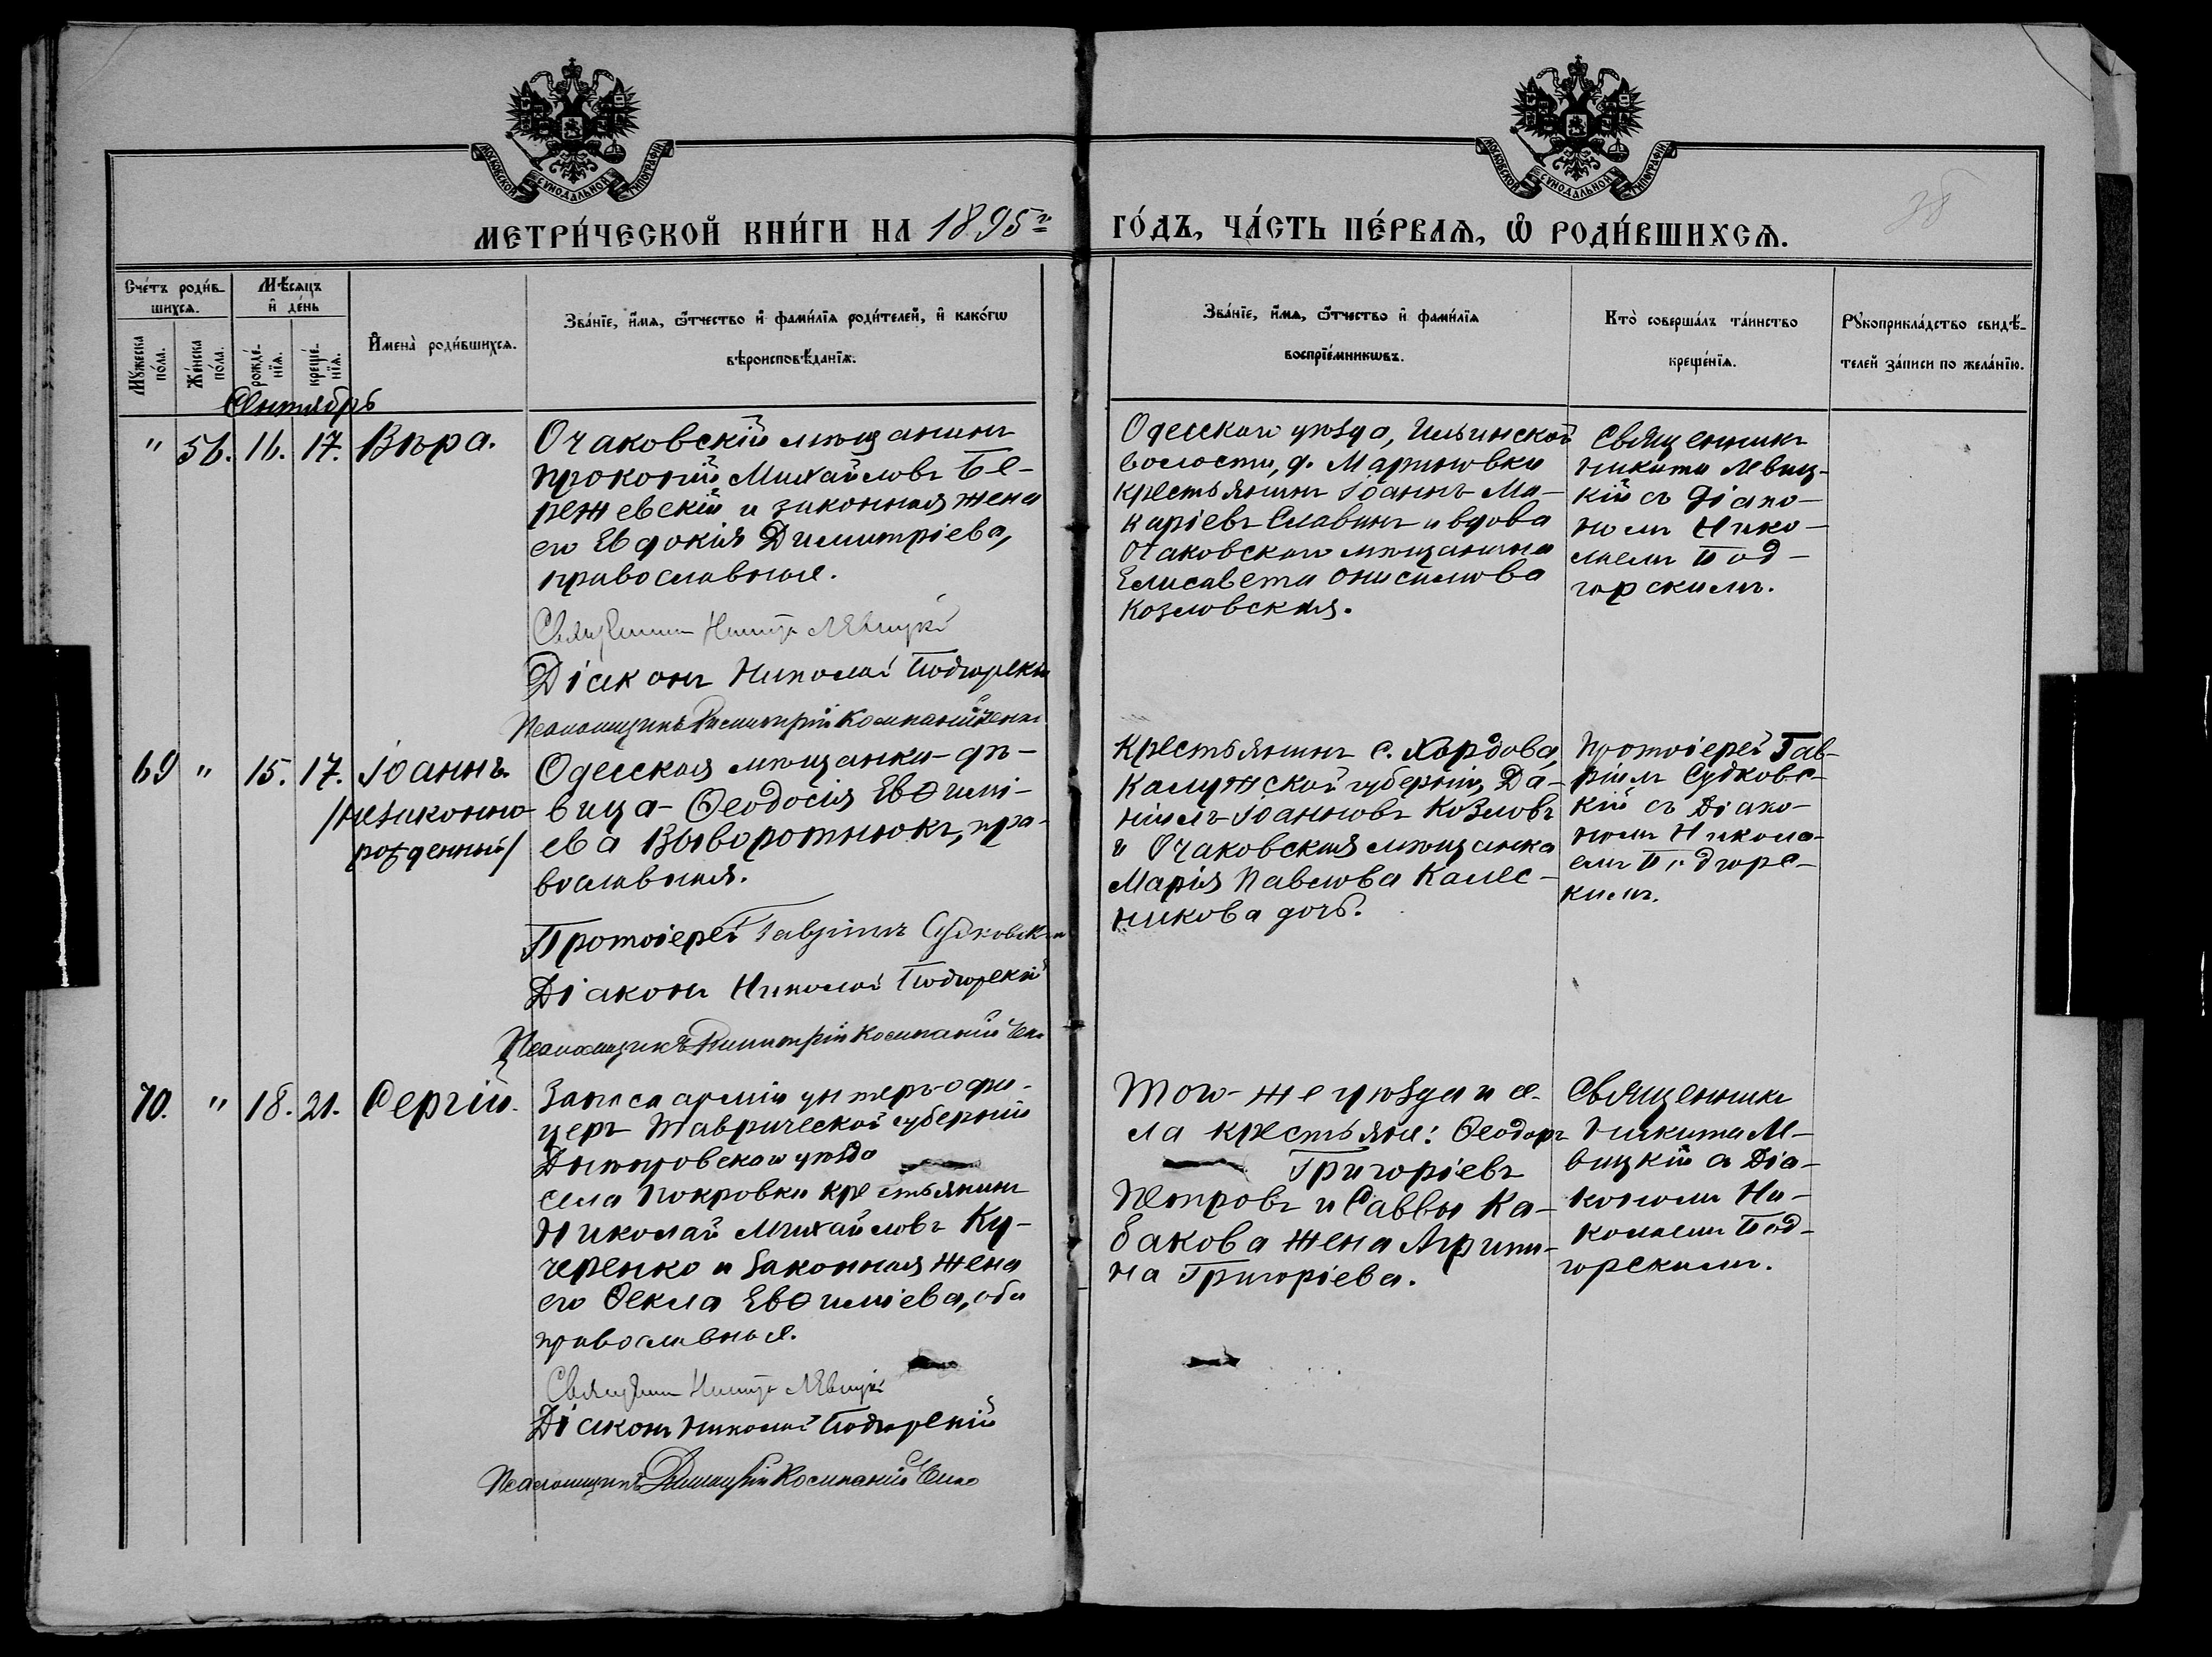 МОСКОВСКОЙ СѴНОДАЛЬНОЙ ТИПОГРАФІИ
МОСКОВСКОЙ СѴНОДАЛЬНОЙ ТИПОГРАФІИ
МЕТРИ́ЧЕСКОЙ КНИ́ГИ НА 1895 г
ГО́ДЪ, ЧА́СТЬ ПЕ́РВАѦ, Ѡ҆ РОДИ́ВШИХСѦ.
Сче́тъ роди́в-
шихсѧ.
Мꙋ́жеска по́ла.
Же́нска по́ла.
Мѣ́сѧцъ
и҆ де́нь
рожде́-
нїѧ.
креще́-
нїѧ.
И҆мена̀ роди́вшихсѧ.
Зва́нїе, и҆́мѧ, ѻ҆́тчество и҆ фами́лїѧ роди́телей, и҆ како́гѡ
вѣроисповѣ́данїѧ.
Зва́нїе, и҆́мѧ, ѻ҆́тчество и҆ фами́лїѧ
воспрїе́мникѡвъ.
Кто̀ соверша́лъ та́инство
креще́нїѧ.
Рꙋкоприкла́дство свидѣ́-
телей за́писи по жела́нїю.
Сентябрь
" 56. 16. 17. Вѣра.
Очаковскій мѣщанинъ
Прокопій Михайловъ Бе-
режевскій и законная жена
его Евдокія Димитріева,
православные.
Священникъ Никита Левицкій
Діаконъ Николай Подгорскій
Псаломщикъ Димитрій Компанійченко
Одесскаго уѣзда, Ильинской
волости, д. Мариновки
крестьянинъ Іоаннъ Ма-
каріевъ Славинъ и вдова
Очаковскаго мѣщанина
Елисавета Онисимова
Козловская.
Священникъ
Никита Левиц-
кій съ діако-
номъ Нико-
лаемъ Под-
горскимъ.
69 " 15. 17. Іоаннъ.
/незаконно-
рожденный/
Одесская мѣщанка-дѣ-
вица-Ѳеодосія Евѳимі-
ева Выворотнюкъ, пра-
вославная.
Протоіерей Гавріилъ Судковскій
Діаконъ Николай Подгорскій
Псаломщикъ Димитрій Компанійченко
Крестьянинъ с. Хордова,
Калужской губерніи, Да-
ніилъ Іоанновъ Козловъ
и Очаковская мѣщанка
Марія Павлова Калес-
никова дочь.
Протоіерей Гав-
ріилъ Судковс-
кій съ Діако-
номъ Никола-
емъ Подгорс-
кимъ.
70. " 18. 21. Сергій.
Запаса арміи унтеръ-офи-
церъ Таврической губерніи
Днѣпровскаго уѣзда
села Покровки крестьянинъ
Николай Михайловъ Ку-
черенко и законная жена
его Ѳекла Евѳиміева, оба
православные.
Священникъ Никита Левицкій
Діаконъ Николай Подгорскій
Псаломщикъ Димитрій Компанійченко
Того-же уѣзда и се-
ла крестьяне: Ѳеодоръ
Григоріевъ
Петровъ и Саввы Ка-
бакова жена Агрипи-
на Григоріева.
Священникъ
Никита Ле-
вицкій съ Діа-
кономъ Ни-
колаемъ Под-
горскимъ.